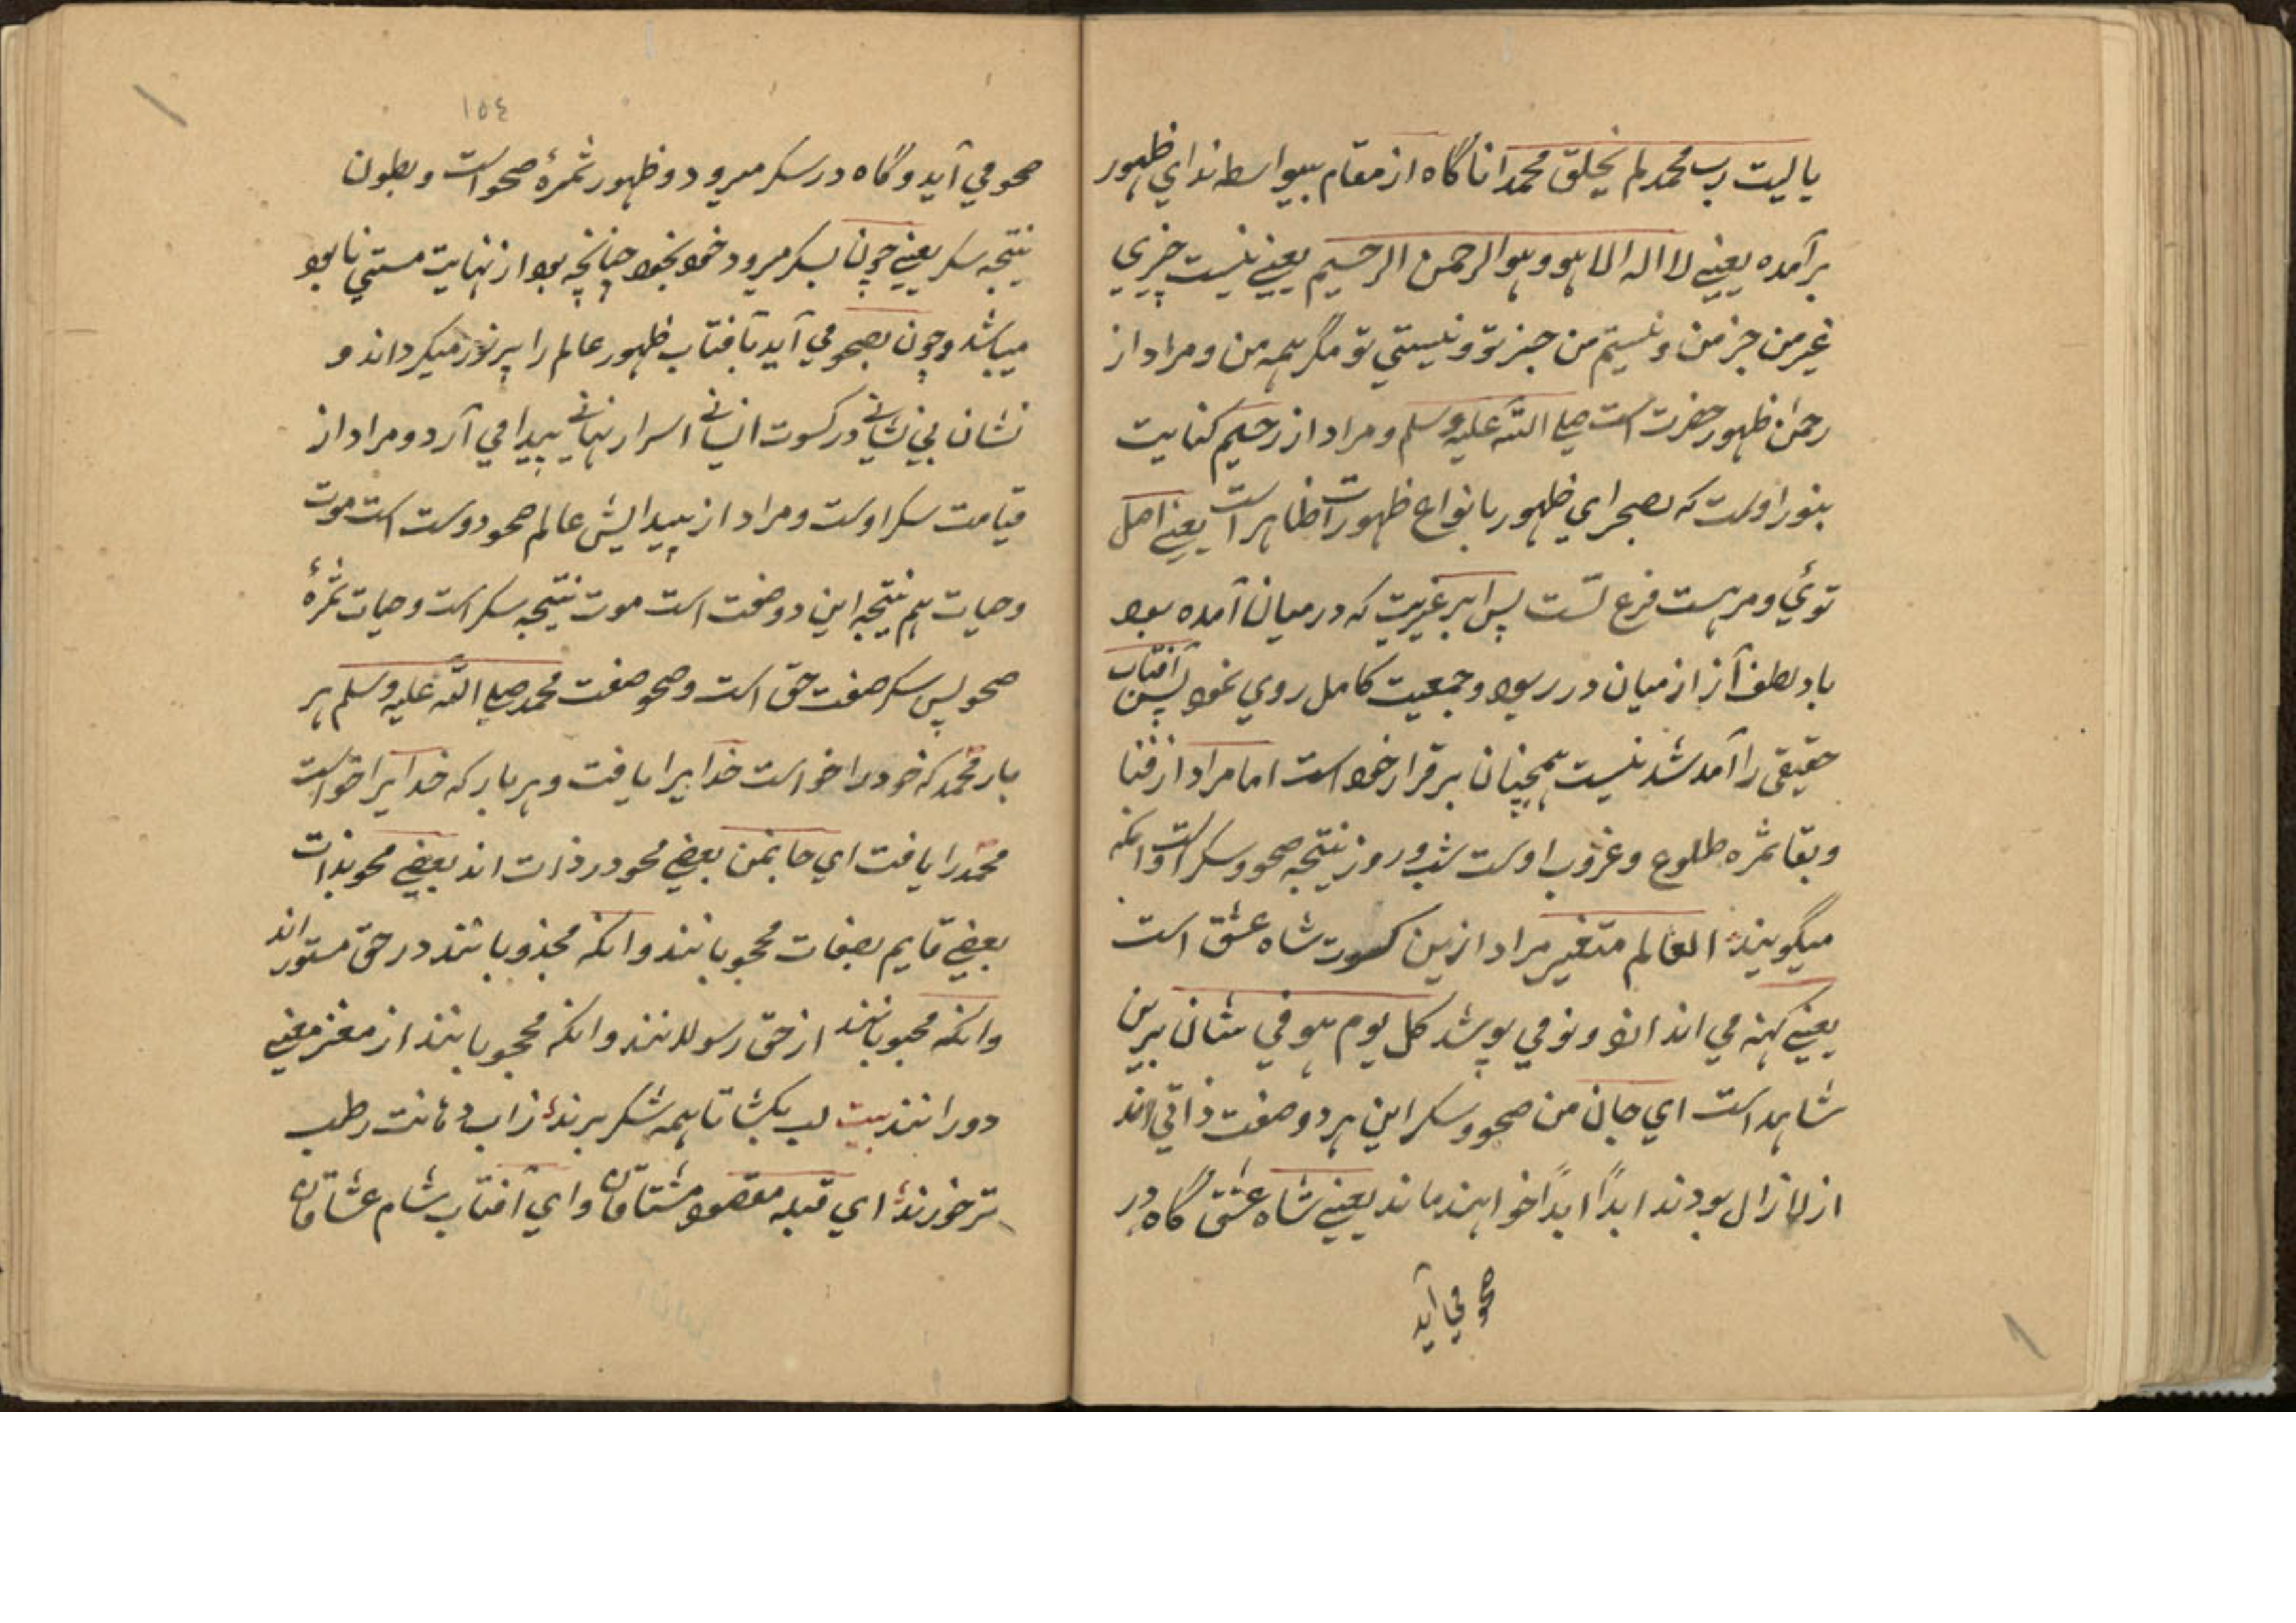 یا لیت رب محمد لم یخلق محمدا ناگاه از مقام بیواسطه ندای ظهور
برآمده یعنے لا اله الا هو و هو الرحمن الرحیم یعنے نیست چیزی
غیر من جز من و نیستم من جز تو و نیستی تو مگر همه من و مراد از
رحمن ظهور حضرت است صلے اللّه علیه وسلم و مراد از رحیم کنایت
بنور اوست که بصحرای ظهور بانواع ظهورات ظاهر است یعنے اصل
توئی و مر هست فرع تست پس ابر غیریت که در میان آمده بود
باد لطف آنرا از میان در ربود و جمعیت کامل روی نمود پس آفتاب
حقیقی را آمد شد نیست همچنان برقرار خود است اما مراد از فنا
و بقا ثمره طلوع و غروب اوست شب و روز نتیجه صحو و سکر است وانکه
میگویند العالم متغیر مراد ازین کسوت شاه عشق است
یعنے کهنه می اندازد و نو می پوشد کل یوم هو فی شان برین
شاهد است ای جان من صحو و سکر این هر دو صفت ذاتی اند
ازلا زال بودند ابداً ابداً خواهند ماند یعنے شاه عشق گاه در
صحو می آید
١٥٤
صحو می آید و گاه در سکر میرود و ظهور ثمرهٔ صحو است و بطون
نتیجه سکر یعنے چون بسکر میرود خود بخود چنانچه بود از نهایت مستی نابود
میباشد و چون بصحو می آید بآفتاب ظهور عالم را پر نور میگرداند و
نشان بی نشانے در کسوت انسانے اسرار نهانے پیدا می آرد و مراد از
قیامت سکر اوست و مراد از پیدایش عالم صحو دوست است موت
و حیات هم نتیجه این دو صفت است موت نتیجه سکر است و حیات ثمرهٔ
صحو پس سکر صفت حق است و صحو صفت محمد صلے اللّه علیه وسلم هر
بار محمد که خود را خواست خدایرا یافت و هر بار که خدایرا خواست
محمد را یافت ای جانمن بعضے محو در ذات اند بعضے محو بذات
بعضے قایم بصفات محجوبانند وانکه مجذوبانند در حق مستور اند
وانکه محبوبانند از حق رسولانند وانکه محجوبانند از مغز معنے
دورانند بیت لب بکشا تا همه شکر برند ز آب دهانت رطب
تر خورند ای قبله مقصود مشتاقان و ای آفتاب شام عشاقان